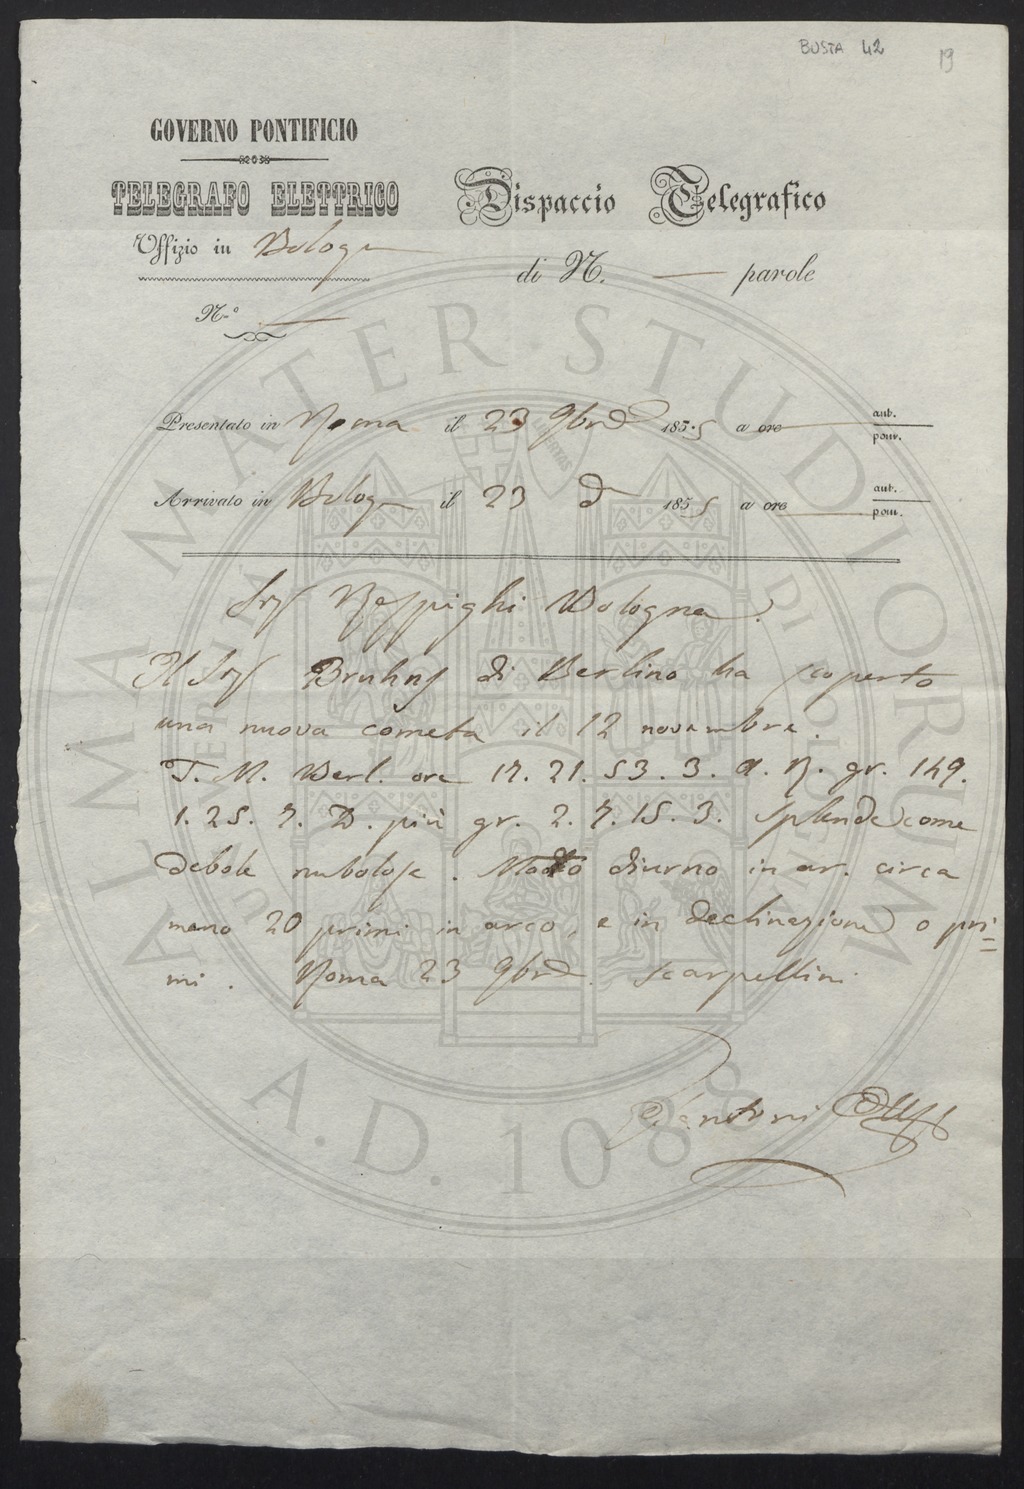 BUSTA 42
19
GOVERNO PONTIFICIO
TELEGRAFO ELETTRICO
Dispaccio Telegrafico
Uffizio in Bologn
di N. — parole
N.º —
Presentato in Roma il 23 9bre 1855 a ore — ant. pom.
Arrivato in Bologn il 23 d 1855 a ore — ant. pom.
Respighi Bologna.
Il Bruhns di Berlino ha scoperto
una nuova cometa il 12 novembre.
T. M. Berl. ore 17. 21. 53. 3. a. R. gr. 149.
1. 25. 7. D. più gr. 2. 7. 15. 3. splende come
debole nubolose. Motto diurno in ar. circa
meno 20 primi in arco, e in declinazione o pri=
mi. Roma 23 9bre. Scarpellini
ALMA MATER STUDIORUM
A.D. 1088
LIBERTAS